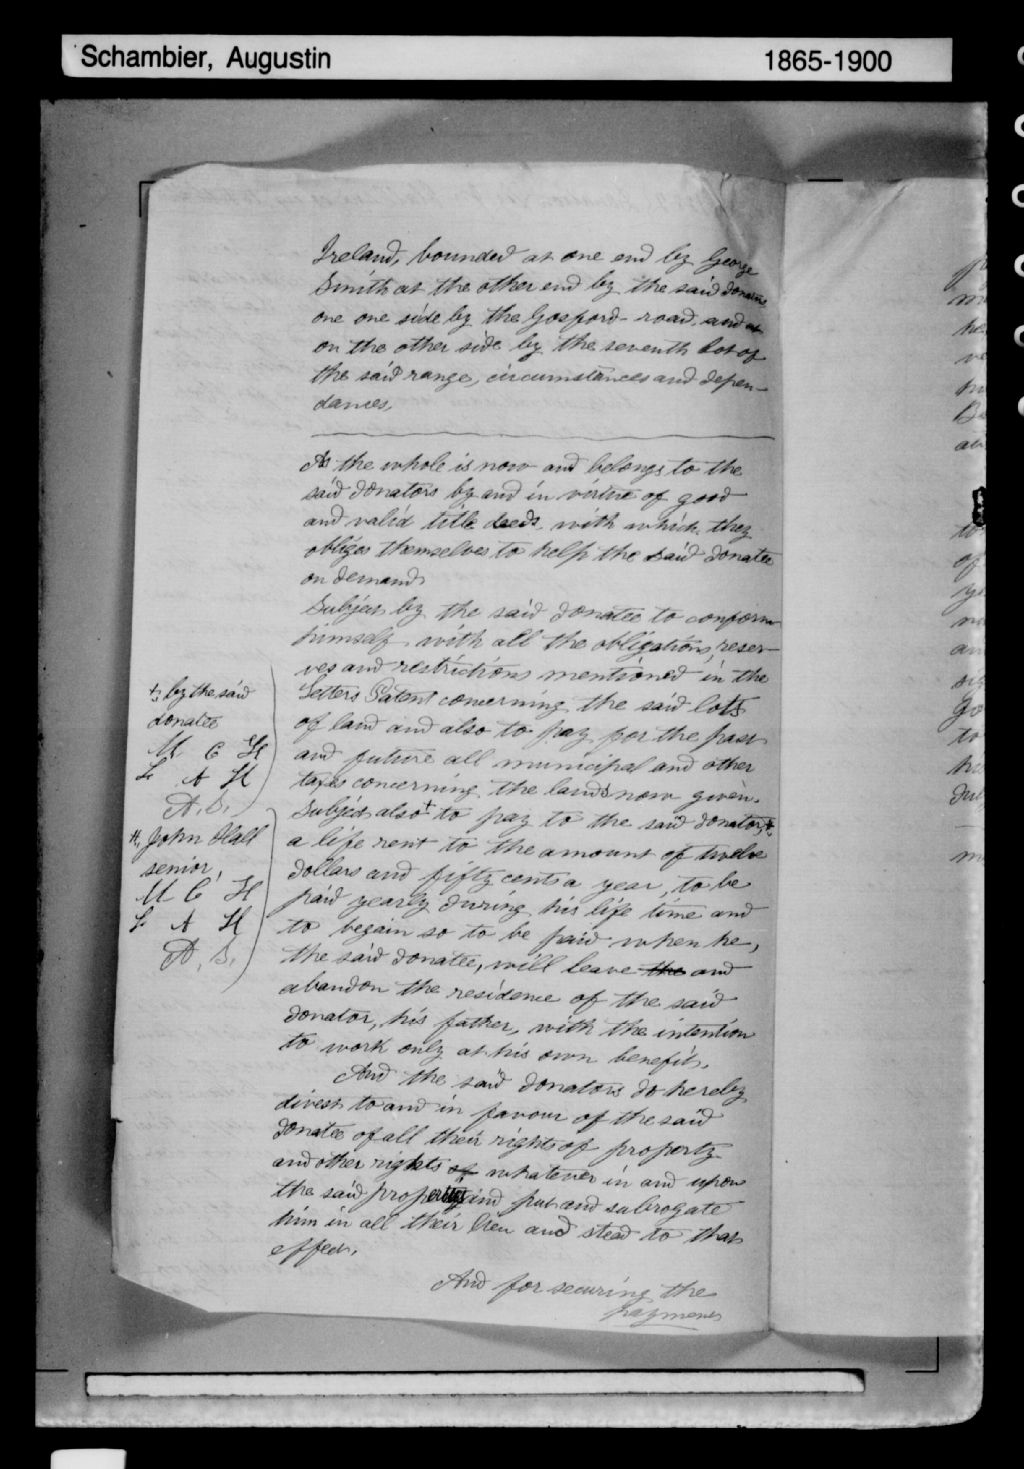 Schambier, Augustin
1865-1900
Ireland, bounded at one end by George
Smith at the other end by the said donators
one one side by the Gosford-road, and at
on the other side by the seventh Lot of
the said range, circumstances and depen-
dances.
As the whole is now and belongs to the
said donators by and in virtue of good
and valid title deeds with which they
obliges themselves to help the said donatee
on demand.
Subject by the said donatee to conform
himself with all the obligations, reser-
ves and restrictions mentioned in the
Letters Patent concerning the said lots
of land and also to pay for the past
and future all municipal and other
taxes concerning the lands now given.
Subject also + to pay to the said donator, #
a life rent to the amount of twelve
dollars and fifty cents a year, to be
paid yearly during his life time and
to begain so to be paid when he,
the said donatee, will leave the and
abandon the residence of the said
donator, his father, with the intention
to work only at his own benefit.
And the said donators do hereby
divest to and in favour of the said
donatee of all their rights of property
and other rights of whatever in and upon
the said property and put and subrogate
him in all their lieu and stead to that
effect.
And for securing the
payment
+, by the said
donatee
M C H
L A H
A. S.
#, John Hall
senior,
M C H
L A H
A. S.